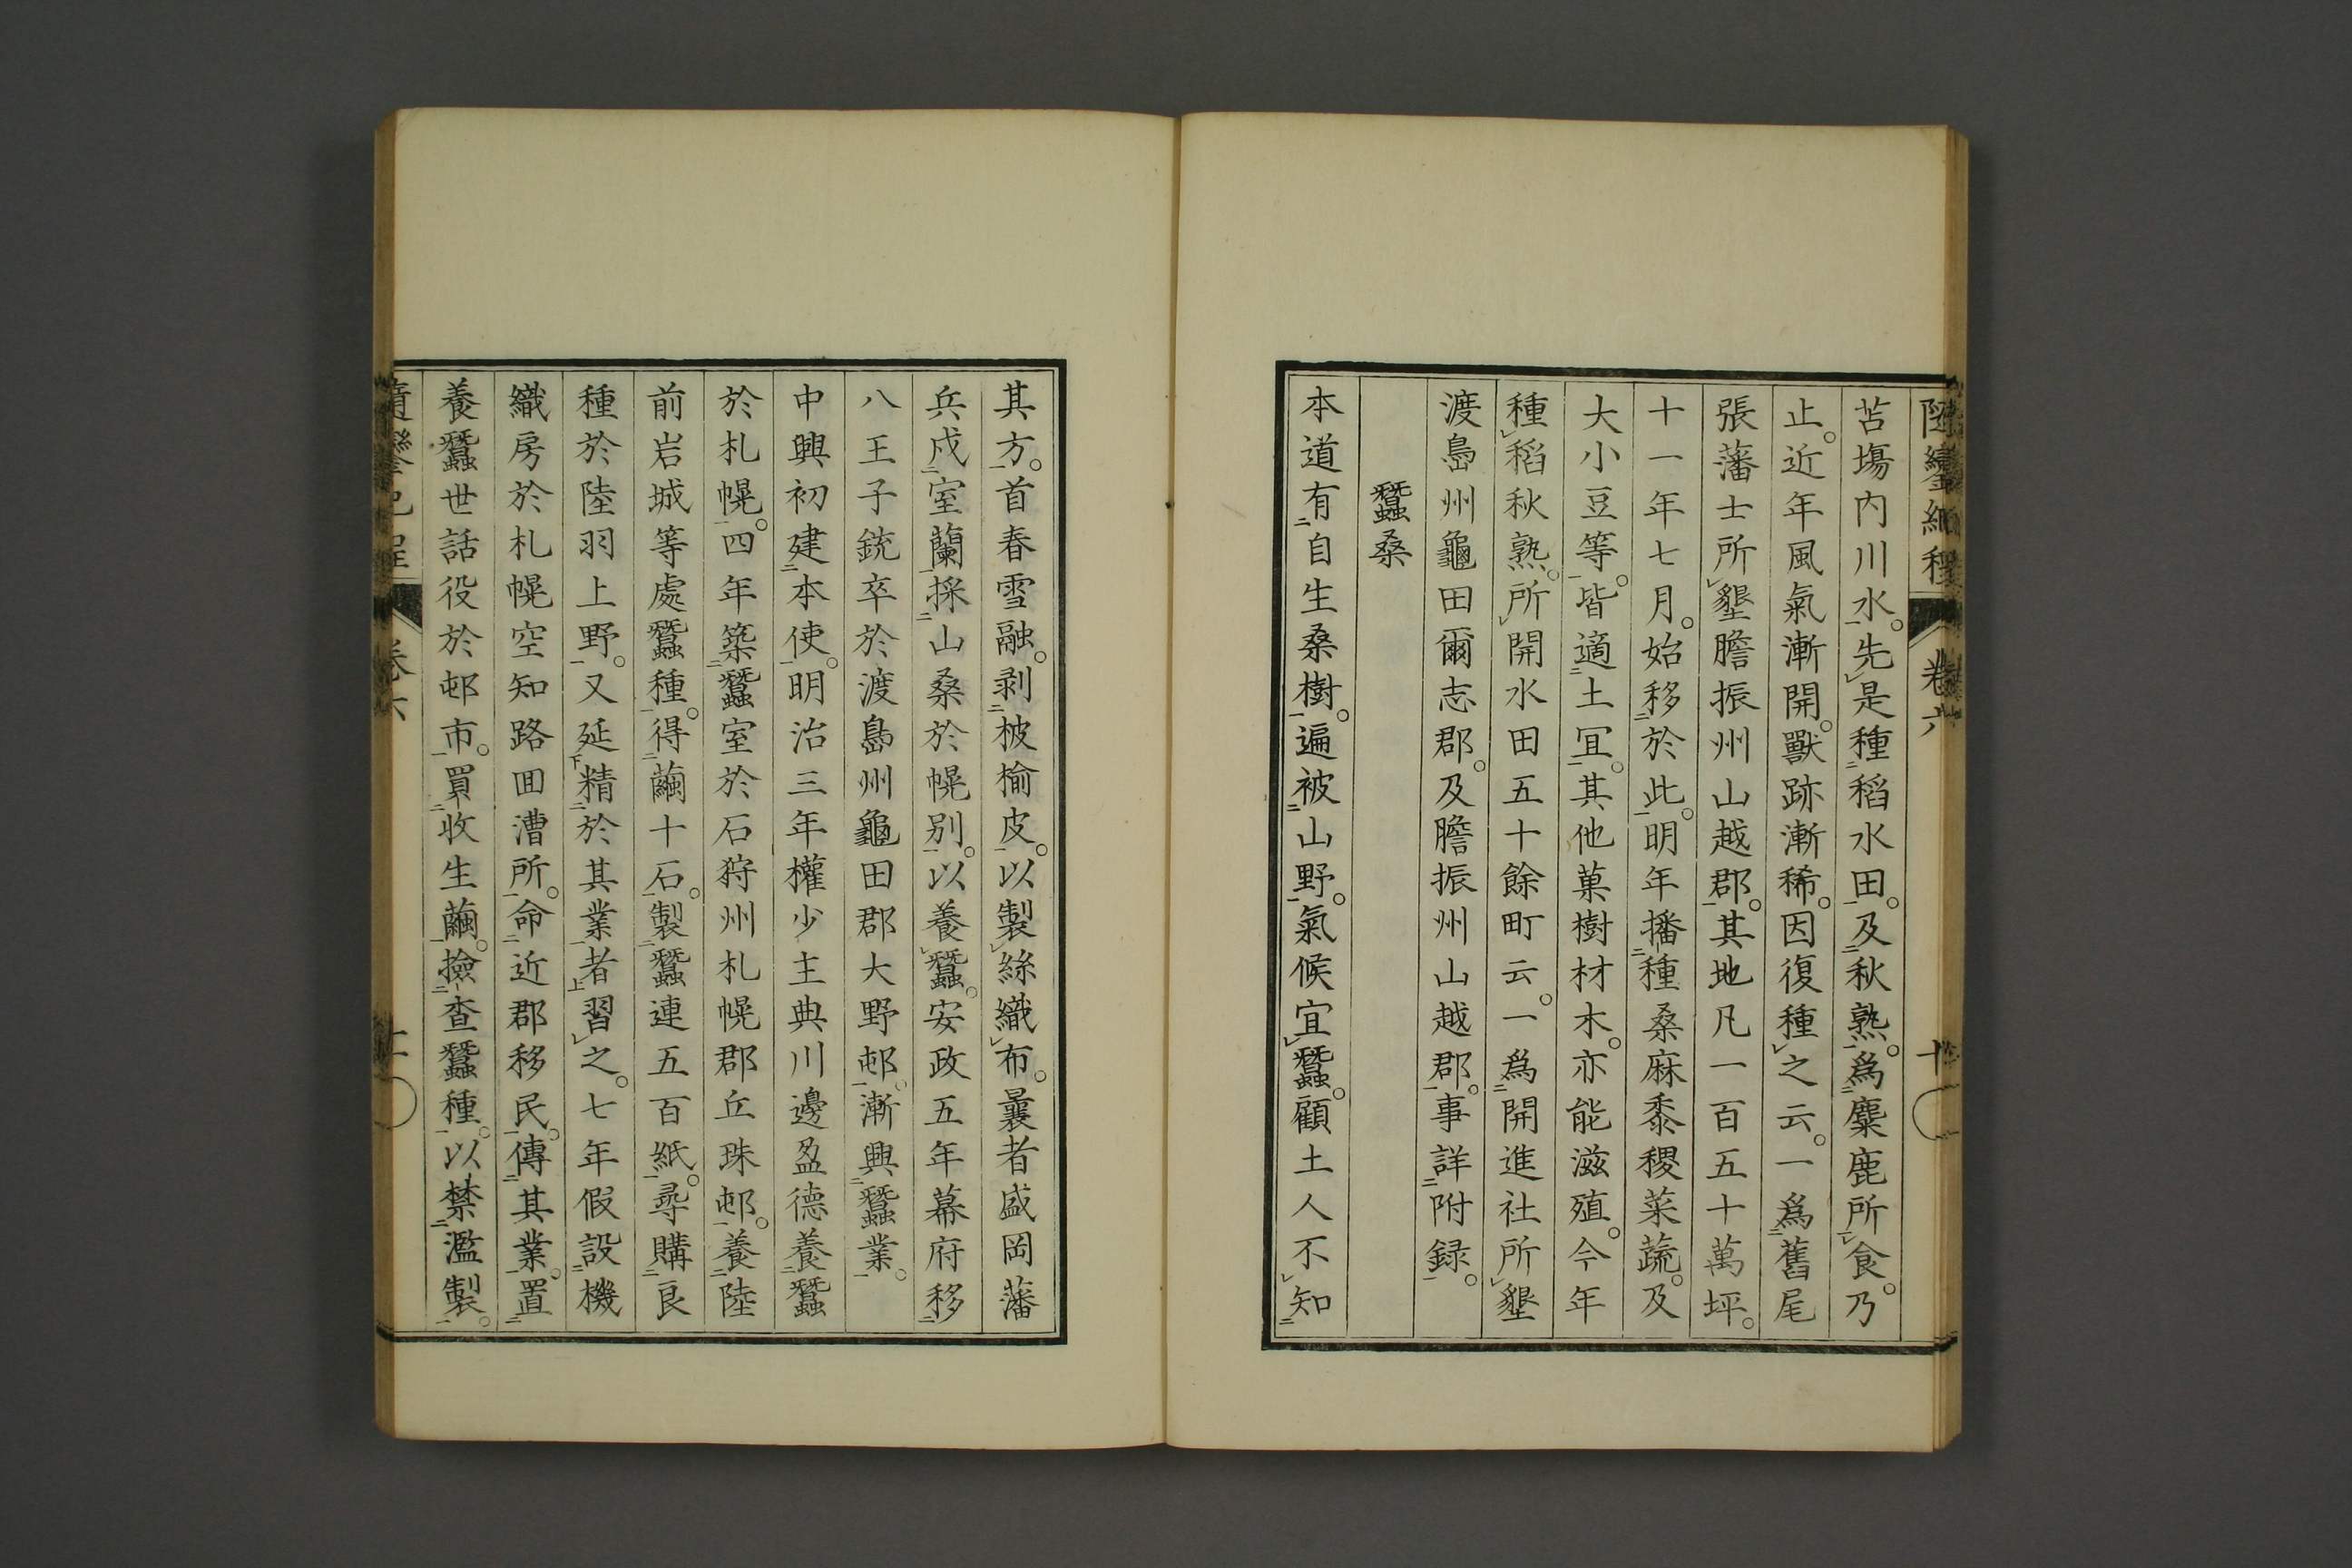 隨鑾紀程 卷六 十一
苫塲内川水。先是種稻水田。及秋熟。爲麋鹿所食。乃
止。近年風氣漸開。獸跡漸稀。因復種之云。一爲舊尾
張藩士所墾膽振州山越郡。其地凡一百五十萬坪。
十一年七月。始移於此。明年播種桑麻黍稷菜蔬。及
大小豆等。皆適土冝。其他菓樹材木。亦能滋殖。今年
種稻秋熟。所開水田五十餘町云。一爲開進社所墾
渡島州龜田爾志郡。及膽振州山越郡。事詳附録。
蠶桑
本道有自生桑樹。遍被山野。氣候宜蠶。顧土人不知
其方。首春雪融。剥柀榆皮。以製絲織布。曩者盛岡藩
兵戍室蘭。採山桑於幌别。以養蠶。安政五年幕府移
八王子銃卒於渡島州龜田郡大野邨。漸興蠶業。
中興初建本使。明治三年權少主典川邊盈德養蠶
於札幌。四年築蠶室於石狩州札幌郡丘珠邨。養陸
前岩城等處蠶種。得繭十石。製蠶連五百紙。尋購良
種於陸羽上野。又延精於其業者習之。七年假設機
織房於札幌空知路囬漕所。命近郡移民。傳其業。置
養蠶世話役於邨市。買收生繭。撿查蠶種。以禁濫製。
卷六